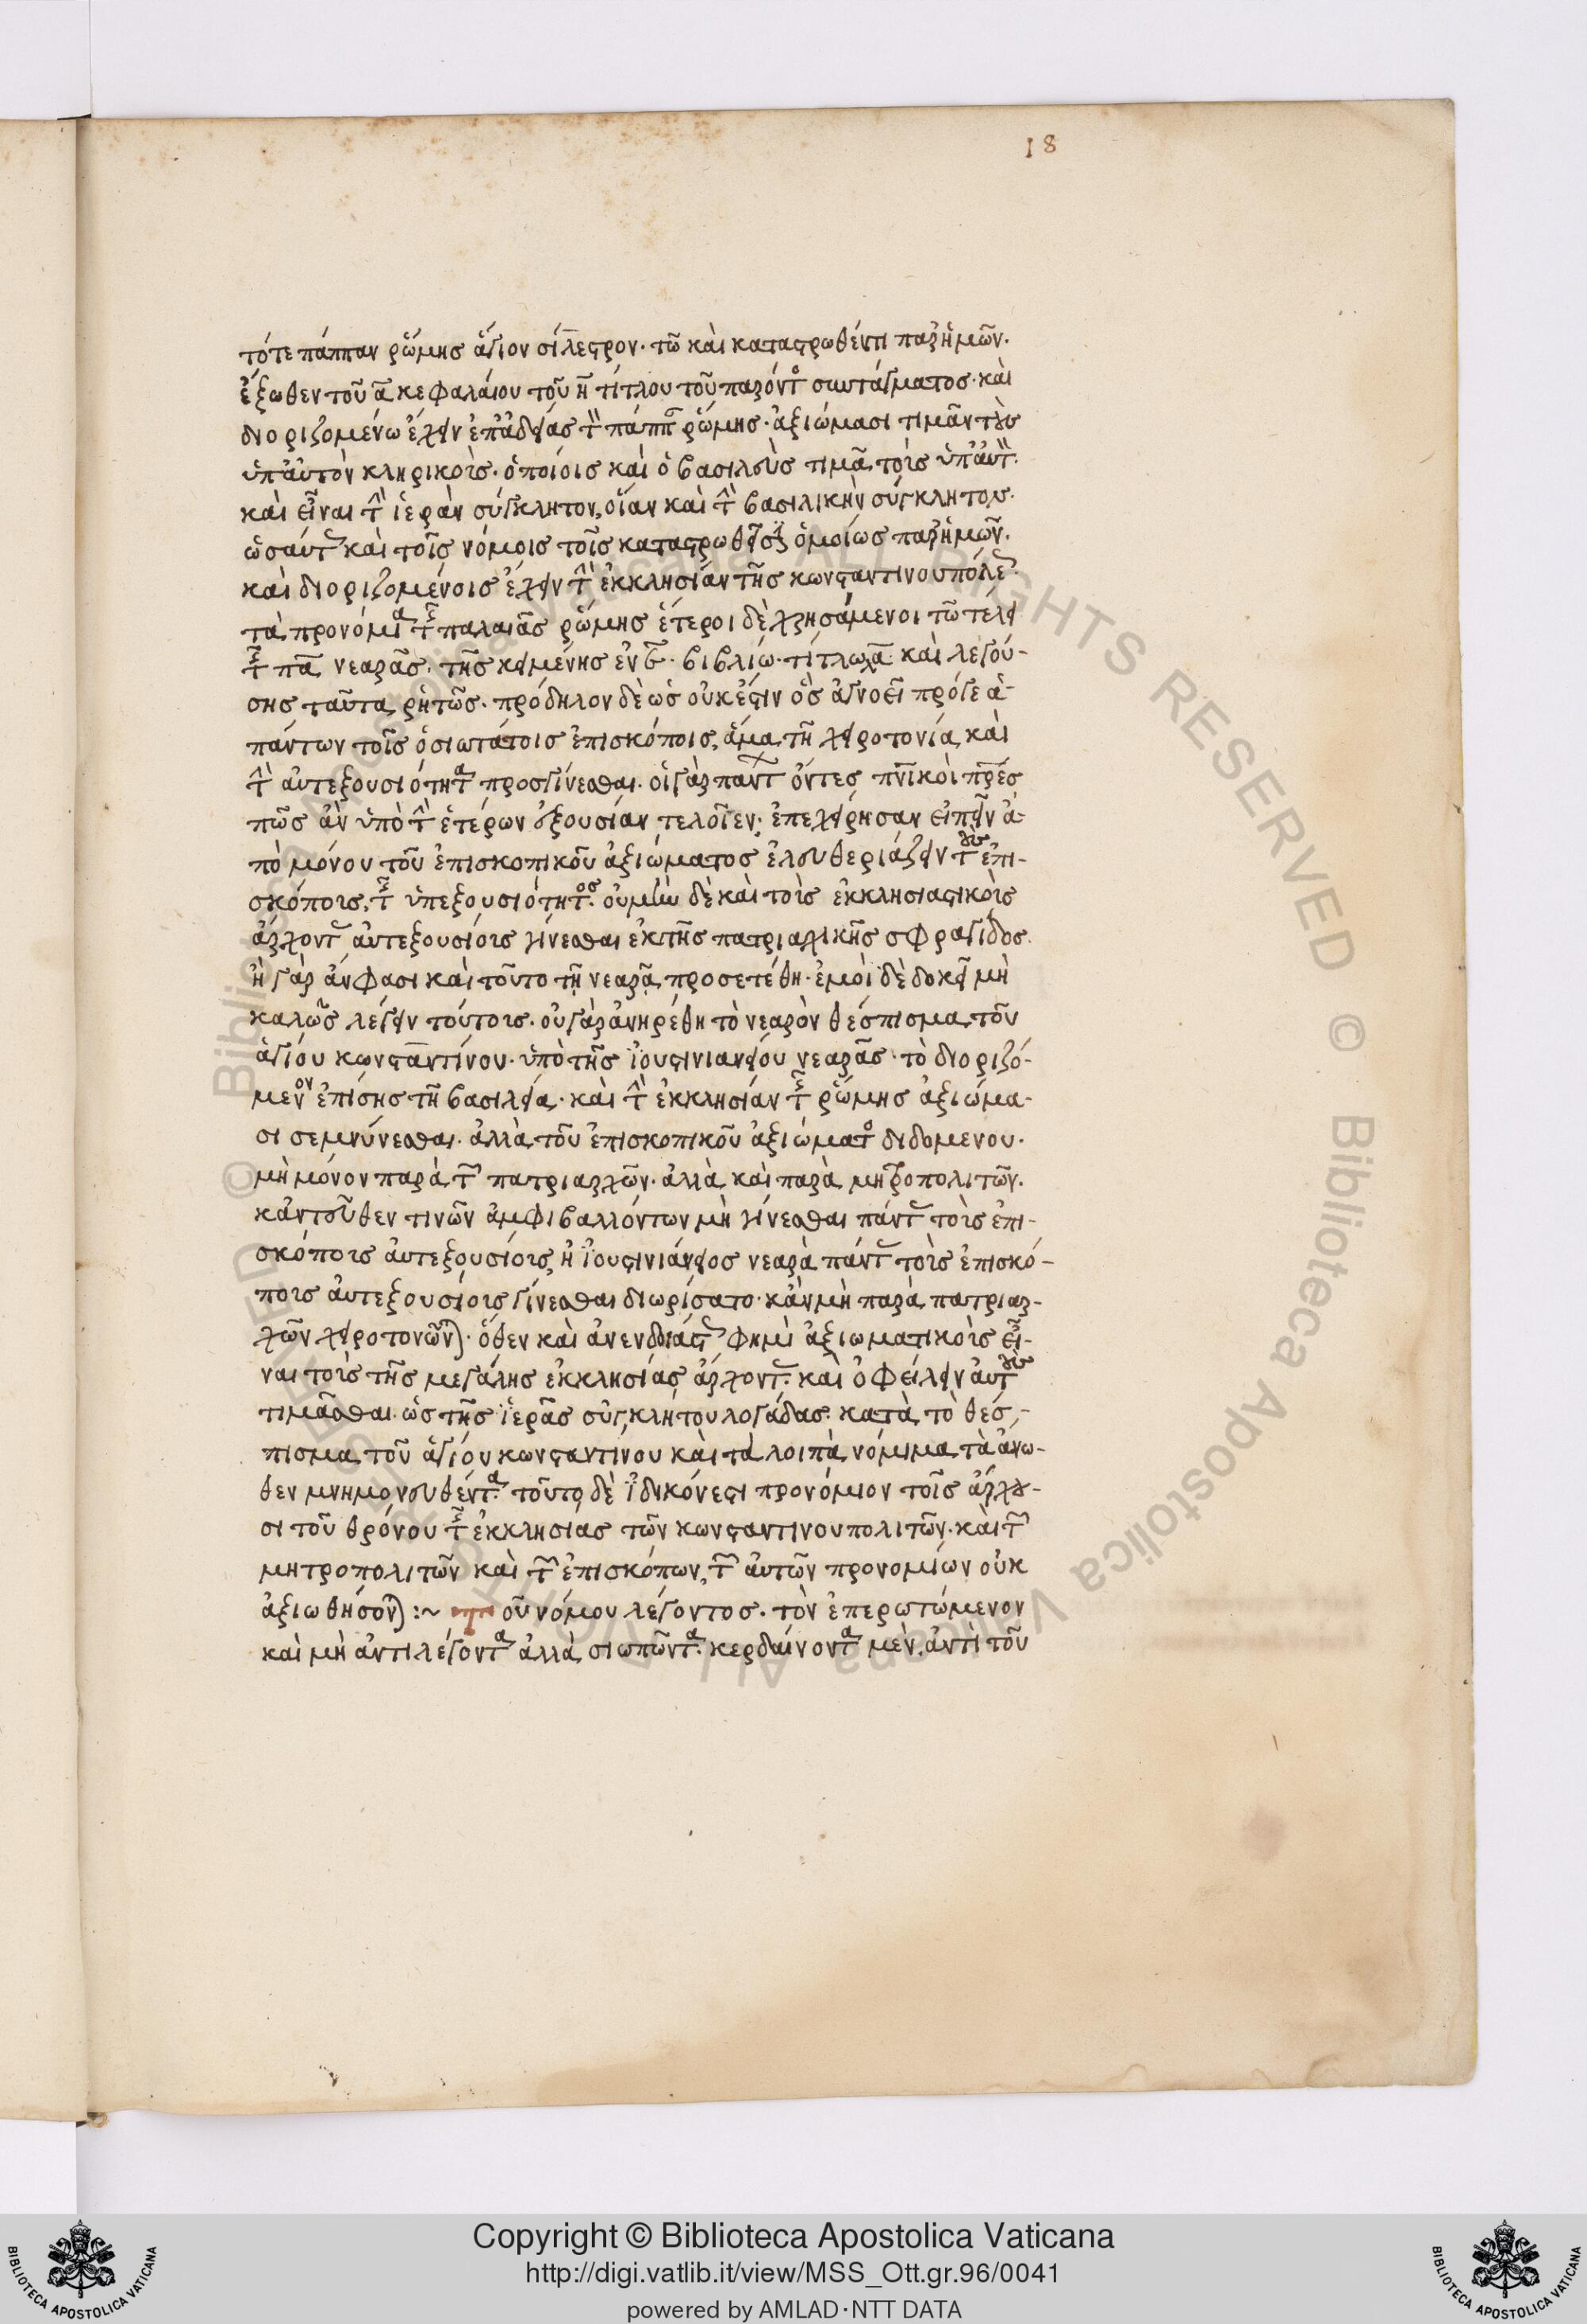 18
τότε πάππαν ῥώμης ἅγιον σίλβεστρον· τῶ καὶ καταστρωθέντι παρ' ἡμῶν·
ἔξωθεν τοῦ α κεφαλαίου τοῦ η τίτλου τοῦ παρόντος συντάγματος· καὶ
διοριζομένω ἔχειν ἐπ' ἀδείας τὸν πάππαν ῥώμης· ἀξιώμασι τιμᾶν τοὺς
ὑπ' αὐτὸν κληρικοὺς· ὁποίοις καὶ ὁ βασιλεὺς τιμᾶ τοὺς ὑπ' αὐτόν·
καὶ εἶναι τὴν ἱερὰν σύγκλητον, οἵαν καὶ τὴν βασιλικὴν σύγκλητον·
ὡσαύτως καὶ τοῖς νόμοις τοῖς καταστρωθεῖσιν ὁμοίως παρ' ἡμῶν·
καὶ διοριζομένοις ἔχειν τὴν ἐκκλησίαν τῆς κωνσταντινουπόλεως·
τὰ προνόμια τῆς παλαιᾶς ῥώμης ἕτεροι δὲ χρησάμενοι τῶ τέλει
τῆς πα νεαρᾶς· τῆς κειμένης ἐν βιβλίω· τίτλω καὶ λεγού-
σης ταῦτα ῥητῶς· πρόδηλον δὲ ὡς οὐκ ἔστιν ὃς ἀγνοεῖ πρόγε ἁ-
πάντων τοῖς ὁσιωτάτοις ἐπισκόποις, ἅμα τῆ χειροτονία καὶ
τὴν αὐτεξουσιότητα προσγίνεσθαι· οἱ γὰρ πάντων ὄντες πνικοὶ πρές
πῶς ἂν ὑπὸ τὴν ἑτέρων ἐξουσίαν τελοῖεν; ἐπεχείρησαν εἰπεῖν ἀ-
πὸ μόνου τοῦ ἐπισκοπικοῦ ἀξιώματος ἐλευθεριάζειν τοὺς ἐπι-
σκόπους, τῆς ὑπεξουσιότητος· οὐ μὴν δὲ καὶ τοὺς ἐκκλησιαστικοὺς
ἄρχοντας αὐτεξουσίους γίνεσθαι ἐκ τῆς πατριαρχικῆς σφραγίδος
ἦ γὰρ ἄν φασι καὶ τοῦτο τῆ νεαρᾶ προσετέθη· ἐμοὶ δὲ δοκεῖ μὴ
καλῶς λέγειν τούτοις· οὐ γὰρ ἀνηρέθη τὸ νεαρὸν θέσπισμα τοῦ
ἁγίου κωνσταντίνου· ὑπὸ τῆς ἰουστινιανείου νεαρᾶς· τὸ διοριζό-
μενον ἐπίσης τῆ βασιλεία· καὶ τὴν ἐκκλησίαν τῆς ῥώμης ἀξιώμα-
σι σεμνύνεσθαι· ἀλλὰ τοῦ ἐπισκοπικοῦ ἀξιώματος διδομένου·
μὴ μόνον παρὰ τῶν πατριαρχῶν· ἀλλὰ καὶ παρὰ μητροπολιτῶν·
κἀντεῦθεν τινῶν ἀμφιβαλλόντων μὴ γίνεσθαι πάντας τοὺς ἐπι-
σκόπους αὐτεξουσίους, ἡ ἰουστινιάνειος νεαρὰ πάντας τοὺς ἐπισκό-
πους αὐτεξουσίους γίνεσθαι διωρίσατο· κἂν μὴ παρὰ πατριαρ-
χῶν χειροτονῶνται· ὅθεν καὶ ἀνενδοιάστως φημὶ ἀξιωματικοὺς εἶ-
ναι τοὺς τῆς μεγάλης ἐκκλησίας ἄρχοντας· καὶ ὀφείλειν αὐτοὺς
τιμᾶσθαι· ὡς τῆς ἱερᾶς συγκλήτου λογάδας· κατὰ τὸ θέσ-
πισμα τοῦ ἁγίου κωνσταντίνου καὶ τὰ λοιπὰ νόμιμα τὰ ἄνω-
θεν μνημονευθέντα· τοῦτο δὲ ἰδικόν ἐστι προνόμιον τοῖς ἄρχου-
σι τοῦ θρόνου τῆς ἐκκλησίας τῶν κωνσταντινουπολιτῶν· καὶ τῶν
μητροπολιτῶν καὶ τῶν ἐπισκόπων, τῶν αὐτῶν προνομίων οὐκ
ἀξιωθήσονται :~ τοῦ νόμου λέγοντος· τὸν ἐπερωτώμενον
καὶ μὴ ἀντιλέγοντα ἀλλὰ σιωπῶντα· κερδαίνοντα μὲν, ἀντὶ τοῦ
Copyright © Biblioteca Apostolica Vaticana
http://digi.vatlib.it/view/MSS_Ott.gr.96/0041
powered by AMLAD·NTT DATA